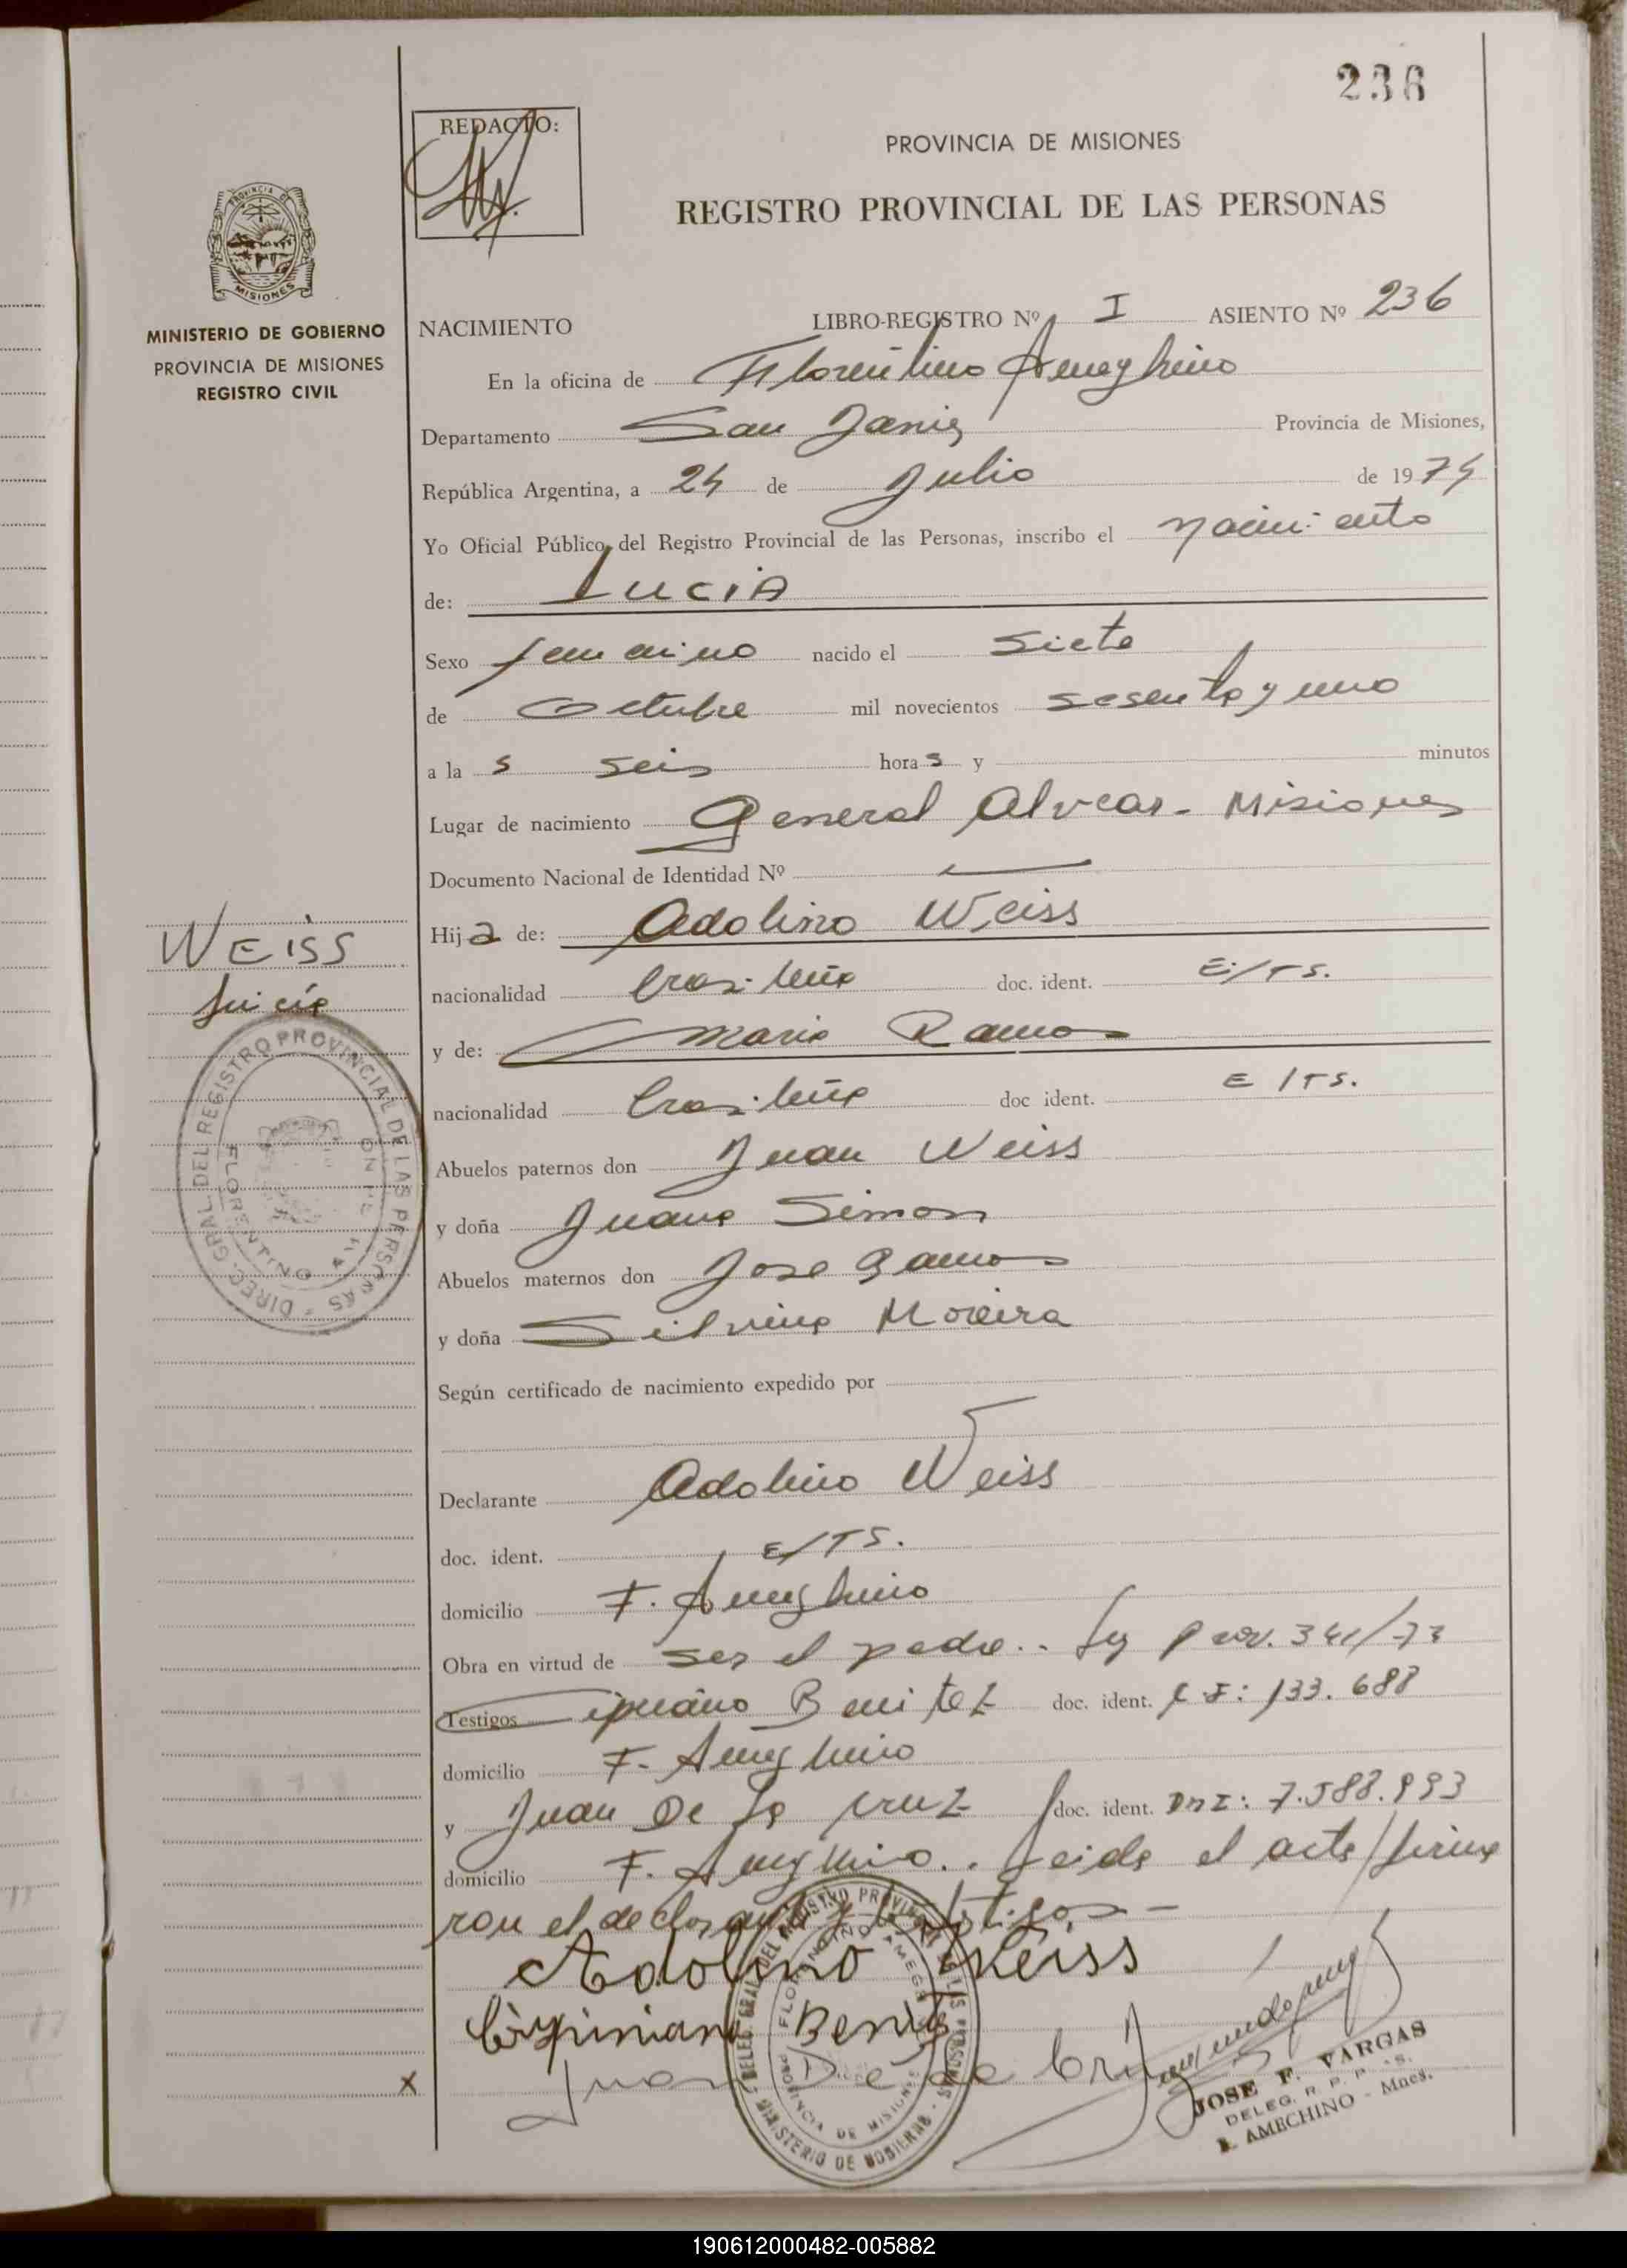 236
REDACTO:
PROVINCIA DE MISIONES
REGISTRO PROVINCIAL DE LAS PERSONAS
MISIONES
MINISTERIO DE GOBIERNO
PROVINCIA DE MISIONES
REGISTRO CIVIL
NACIMIENTO LIBRO-REGISTRO Nº I ASIENTO Nº 236
En la oficina de Florentino Ameghino
Departamento San Javier Provincia de Misiones,
República Argentina, a 24 de Julio de 1974
Yo Oficial Público del Registro Provincial de las Personas, inscribo el nacimiento
de: LUCIA
Sexo femenino nacido el Siete
de Octubre mil novecientos sesenta y uno
a la s seis hora s y minutos
Lugar de nacimiento General Alvear - Misiones
Documento Nacional de Identidad Nº —
Hij a de: Adolino Weiss
nacionalidad brasileña doc. ident. E/TS.
y de: Maria Ramos
nacionalidad brasileña doc ident. E/TS.
Abuelos paternos don Juan Weiss
y doña Juana Simon
Abuelos maternos don Jose Ramos
y doña Silvina Moreira
Según certificado de nacimiento expedido por
Declarante Adolino Weiss
doc. ident. E/TS.
domicilio F. Ameghino
Obra en virtud de ser el padre.. Ley Prov. 341/73
Testigos Cipriano Benitez doc. ident. C.I: 133.688
domicilio F. Ameghino
y Juan De La Cruz doc. ident. DNI: 7.588.993
domicilio F. Ameghino.. Leida el acta, firma
ron el declarante y los testigos. —
Adolino Weiss
Benitez
Juan De la Cruz
JOSE F. VARGAS
DELEG. R. P. P.
F. AMEGHINO - Mnes.
WEISS
Lucia
DIREC. GRAL. DEL REGISTRO PROVINCIAL DE LAS PERSONAS
FLORENTINO AMEGHINO
DELEG. GRAL. DEL REGISTRO PROVINCIAL DE LAS PERSONAS
FLORENTINO AMEGHINO
PROVINCIA DE MISIONES
MINISTERIO DE GOBIERNO
x
190612000482-005882